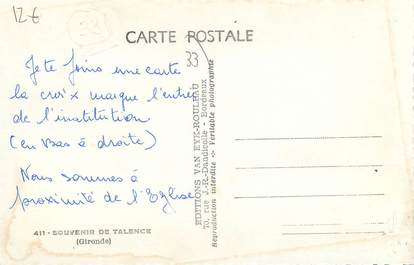 12€
CARTE POSTALE
33
Je te joins une carte
la croix marque l'entrée
de l'institution
(en bas à droite)
Nous sommes à
proximité de l'Eglise
411 - SOUVENIR DE TALENCE
(Gironde)
EDITIONS VAN EYK-ROULEAU
70, rue J.-R.-Dandicolle - Bordeaux
Reproduction interdite - Véritable photographie